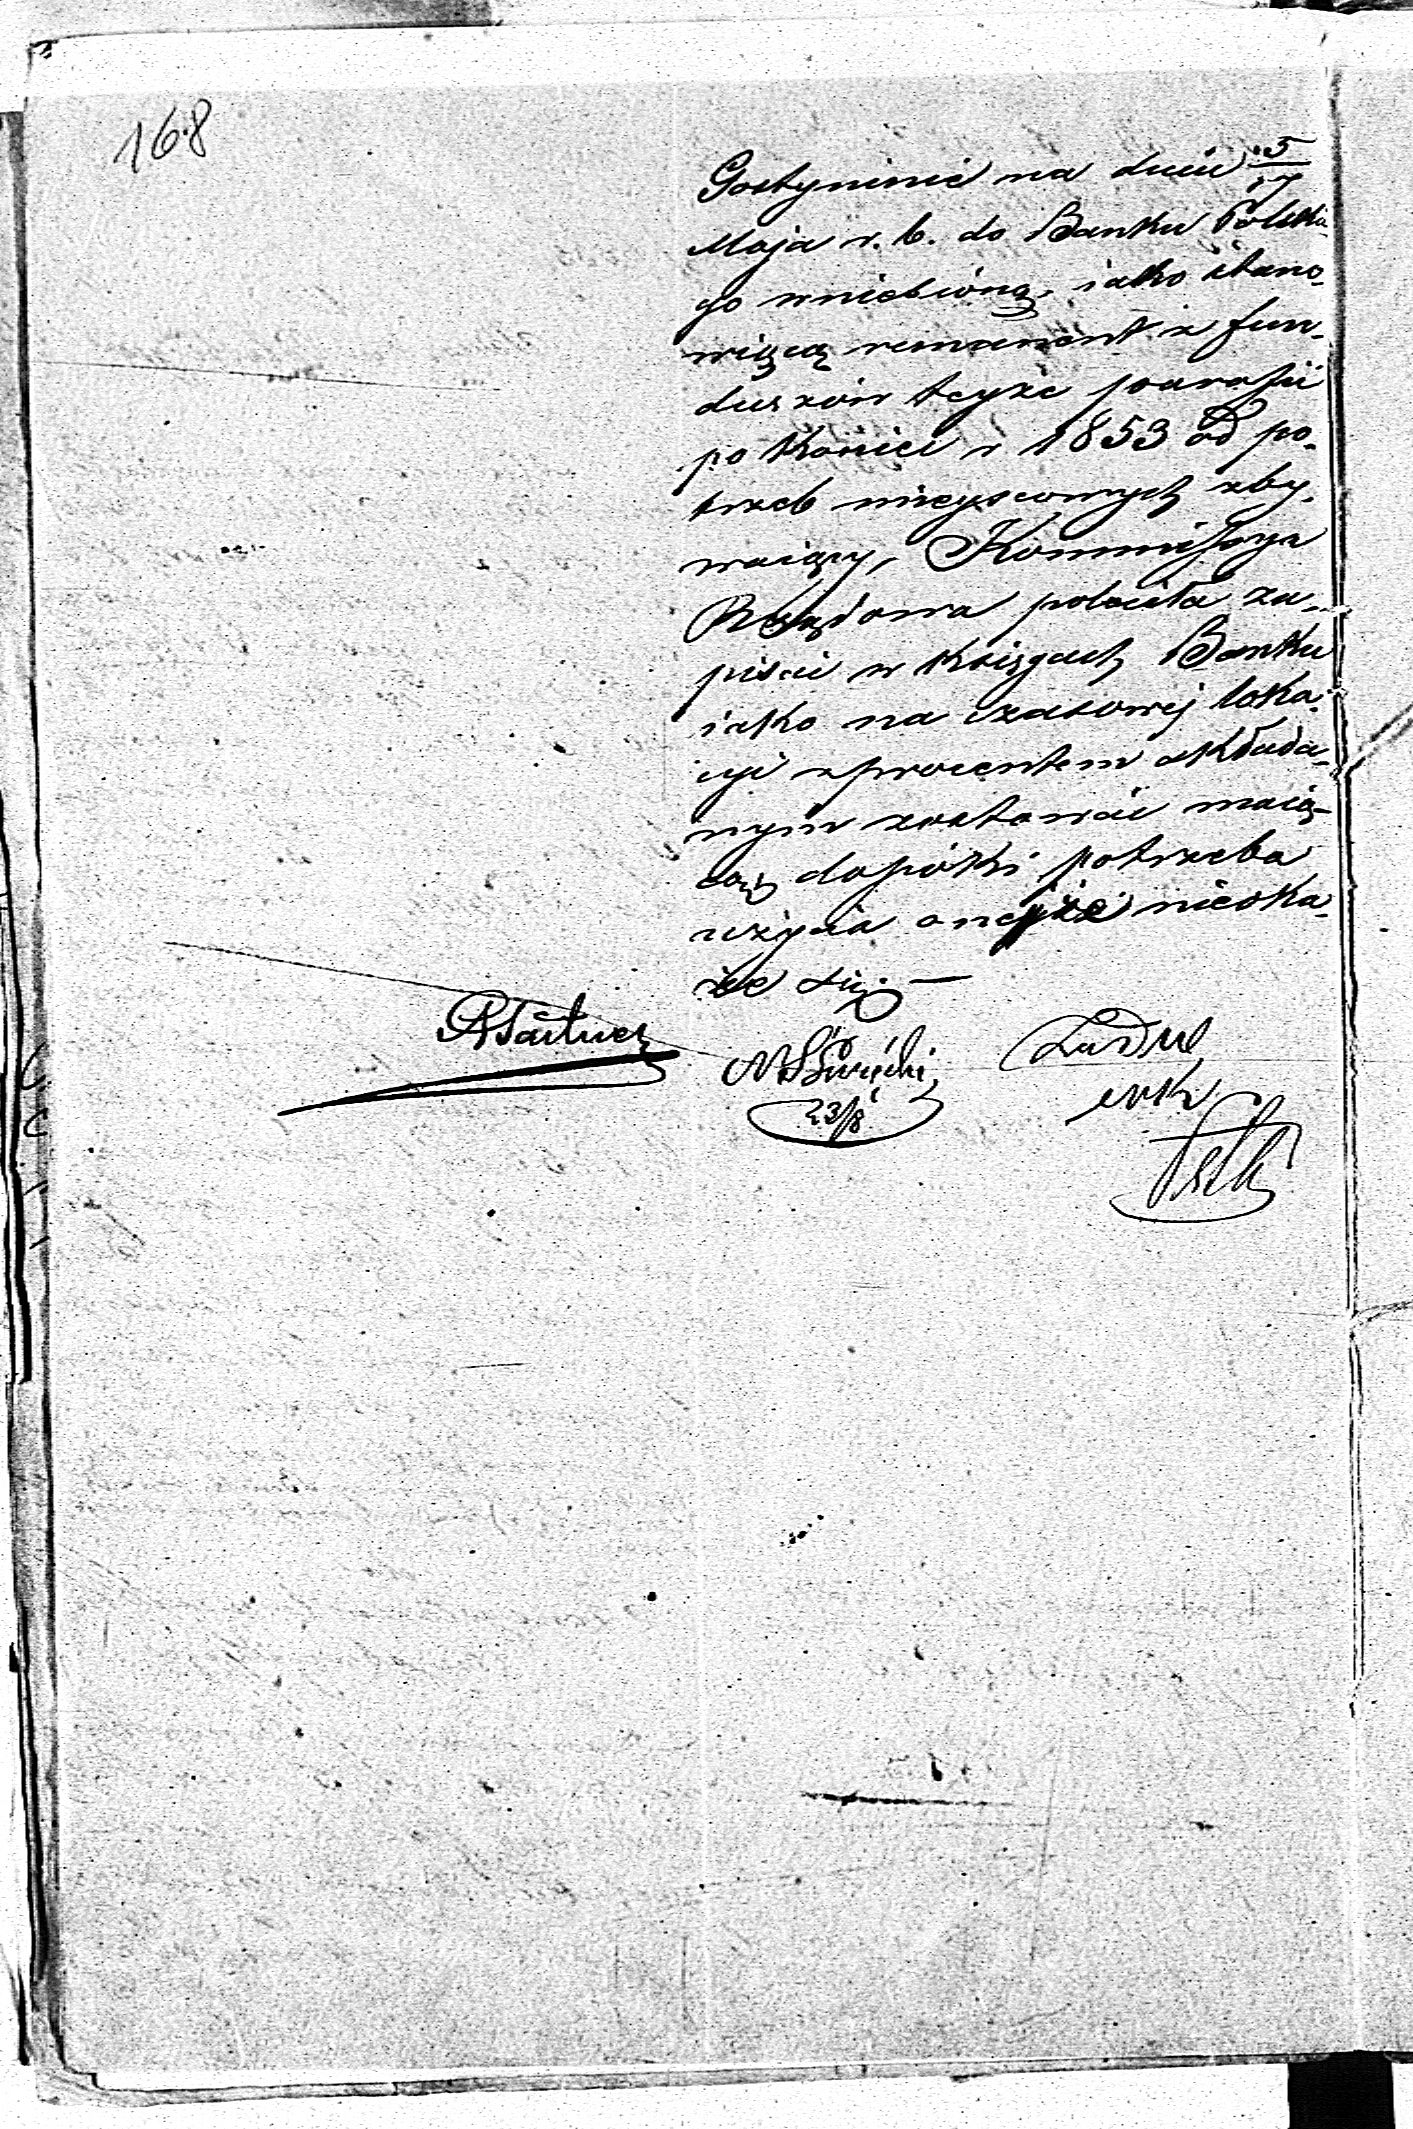 168
Gostyninie na dniu 5/17
Maja r. b. do Banku Polskie-
go wniesioną, iako stano-
wiącą remanent z fun-
duszów teyże parafii
po koniec r 1853 od po-
trzeb mieyscowych zby-
waiący, Kommissya
Rządowa poleciła za-
pisać w księgach Banku
iako na czasowej loka-
cyi z procentem składa-
nym zostawać maią-
cą, dopóki potrzeba
użycia oneyże nieoka-
że się. —
23/8